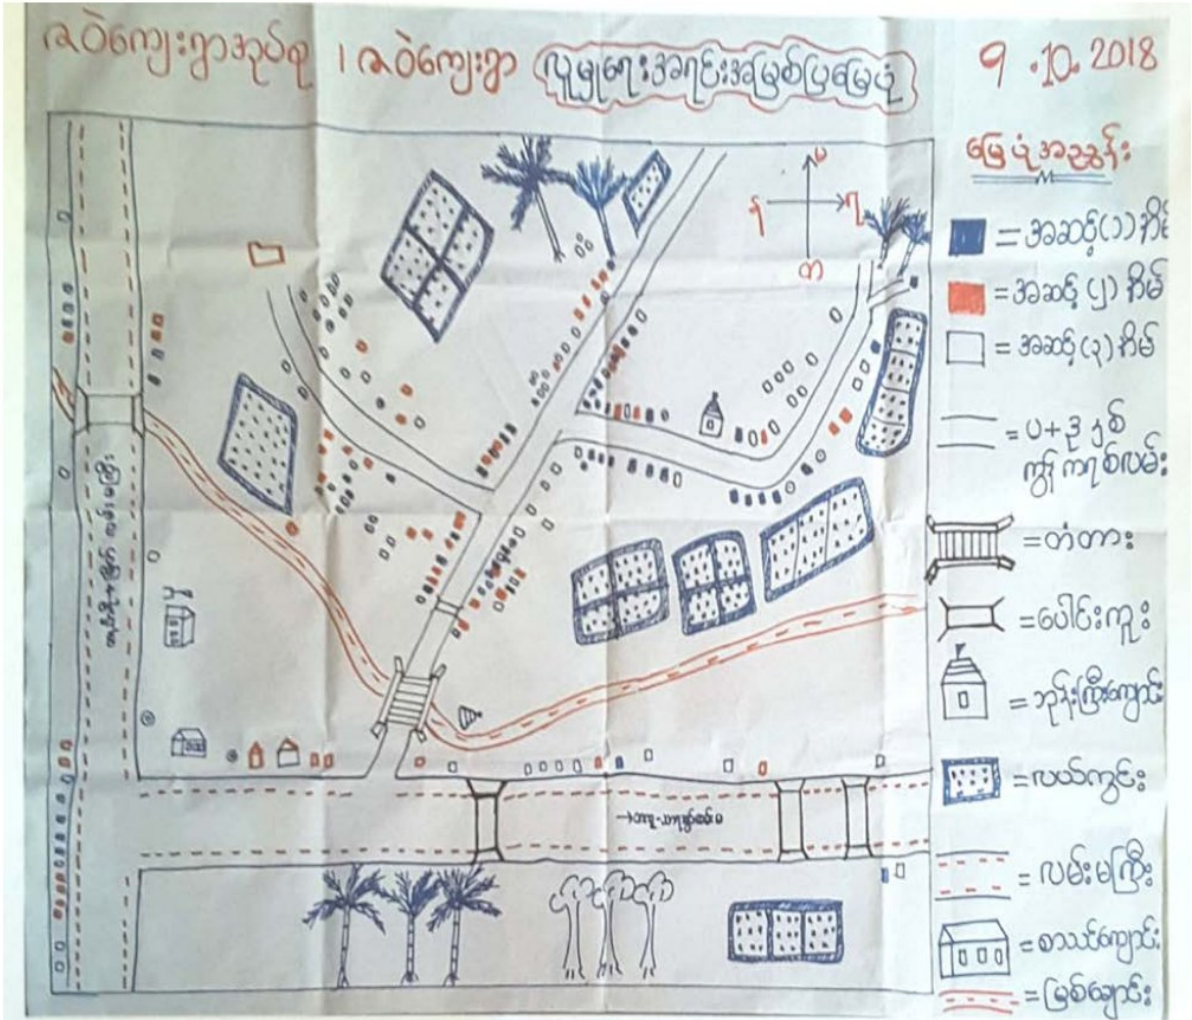 ဇဝဲကျေးရွာအုပ်စု ၊ ဇဝဲကျေးရွာ လူမှုရေးအရင်းအမြစ်ပြမြေပုံ
9.10.2018
မြေပုံအညွှန်း
မ
န
တ
= အဆင့်(၁)အိမ်
= အဆင့်(၂)အိမ်
= အဆင့်(၃)အိမ်
= ကွန်ကရစ်လမ်း
= တံတား
= ပေါင်းကူး
= ဘုန်းကြီးကျောင်း
= လယ်ကွင်း
= လမ်းမကြီး
= စာသင်ကျောင်း
= မြစ်ချောင်း